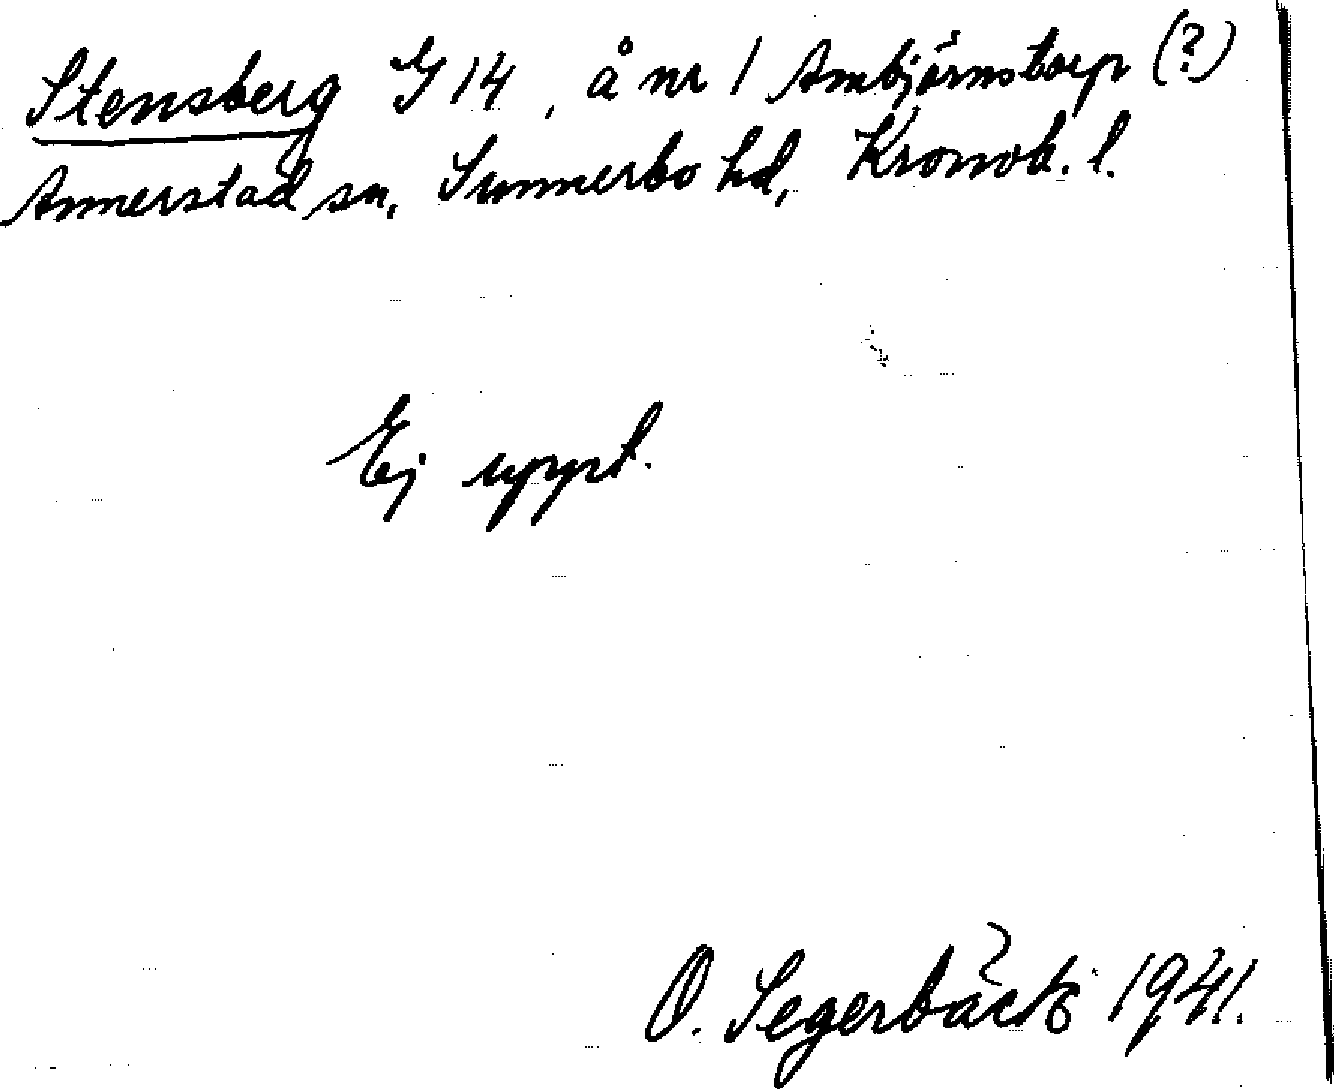 Stensberg G 14, å nr 1 Ambjörnstorp (?)
Annerstad sn, Sunnerbo hd, Kronob. l.
Ej uppt.
O. Segerbäck 1941.